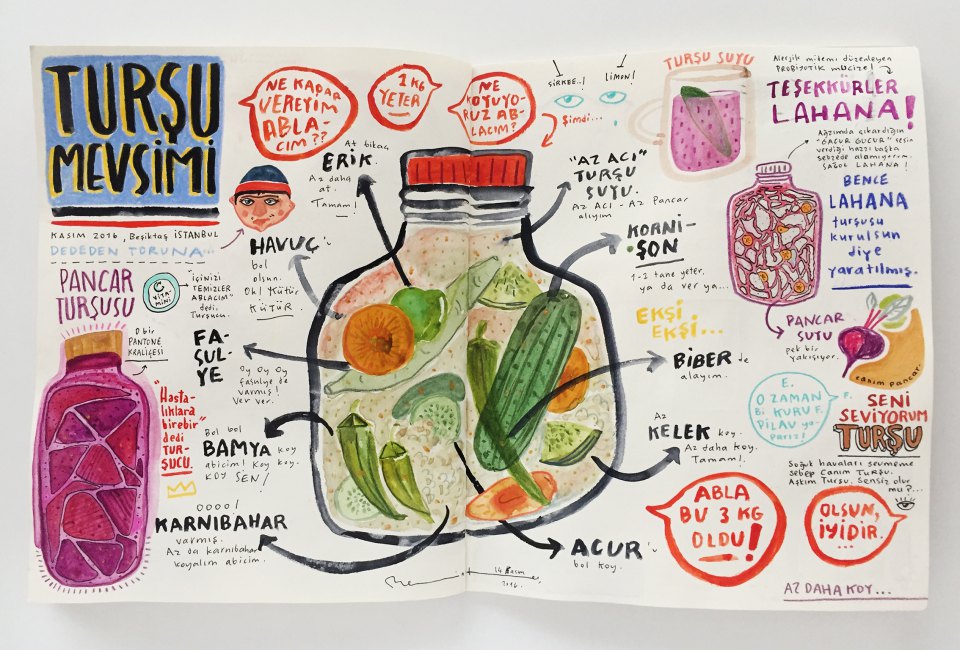 TURŞU
MEVSİMİ
KASIM 2016, Beşiktaş İSTANBUL
DEDEDEN TORUNA...
PANCAR
TURŞUSU
C
VİTA-
MİNİ
"İÇİNİZİ
TEMİZLER
ABLACIM"
dedi,
Turşucu.
O bir
PANTONE
KRALİÇESİ
"Hasta-
lıklara
birebir"
dedi
TUR-
ŞUCU.
NE KADAR
VEREYİM
ABLA-
CIM??
1 KG
YETER
NE
KOYUYO-
RUZ AB-
LACIM?
Şimdi...
At bikaç
ERİK.
Az daha
at.
Tamam!
HAVUÇ'u
bol
olsun.
Oh! Kütür
KÜTÜR.
FA-
SUL-
YE
Oy Oy Oy
fasulye de
varmış!
Ver ver.
Bol bol
BAMYA koy
abicim! Koy koy.
KOY SEN!
OOOO!
KARNIBAHAR
varmış.
Az da karnıbahar
koyalım abicim.
SİRKEE..!
LİMON!
"AZ ACI"
TURŞU
SUYU.
AZ ACI - Az Pancar
alıyım
KORNİ-
ŞON
1-2 tane yeter.
ya da ver ya...
EKŞİ
EKŞİ...
BİBER de
alayım.
Az
KELEK koy.
Az daha koy.
Tamam!
ACUR'u
bol koy.
14 Kasım
2016.
TURŞU SUYU
Alerjik ritmi düzenleyen
PROBİYOTİK MUCİZE!
TEŞEKKÜRLER
LAHANA!
Ağzımda çıkardığın
"GACUR GUCUR" sesin
verdiği hazzı başka
sebzede alamıyorum.
SAĞOL LAHANA!
BENCE
LAHANA
turşusu
kurulsun
diye
yaratılmış.
PANCAR
SUYU
pek bir
yakışıyor.
canım pancar.
E.
O ZAMAN
Bİ KURU F.
PİLAV ya-
parız!
SENİ
SEVİYORUM
TURŞU
Soğuk havaları sevmeme
sebep Canım Turşu.
Aşkım Turşu. Sensiz olur
mu?...
ABLA
BU 3 KG
OLDU!
OLSUN,
İYİDİR.
...
AZ DAHA KOY...